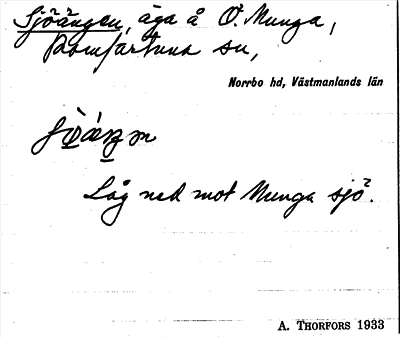 Sjöängen, äga å Ö. Munga,
Romfartuna sn,
Norrbo hd, Västmanlands län
Låg ned mot Munga sjö.
A. THORFORS 1933